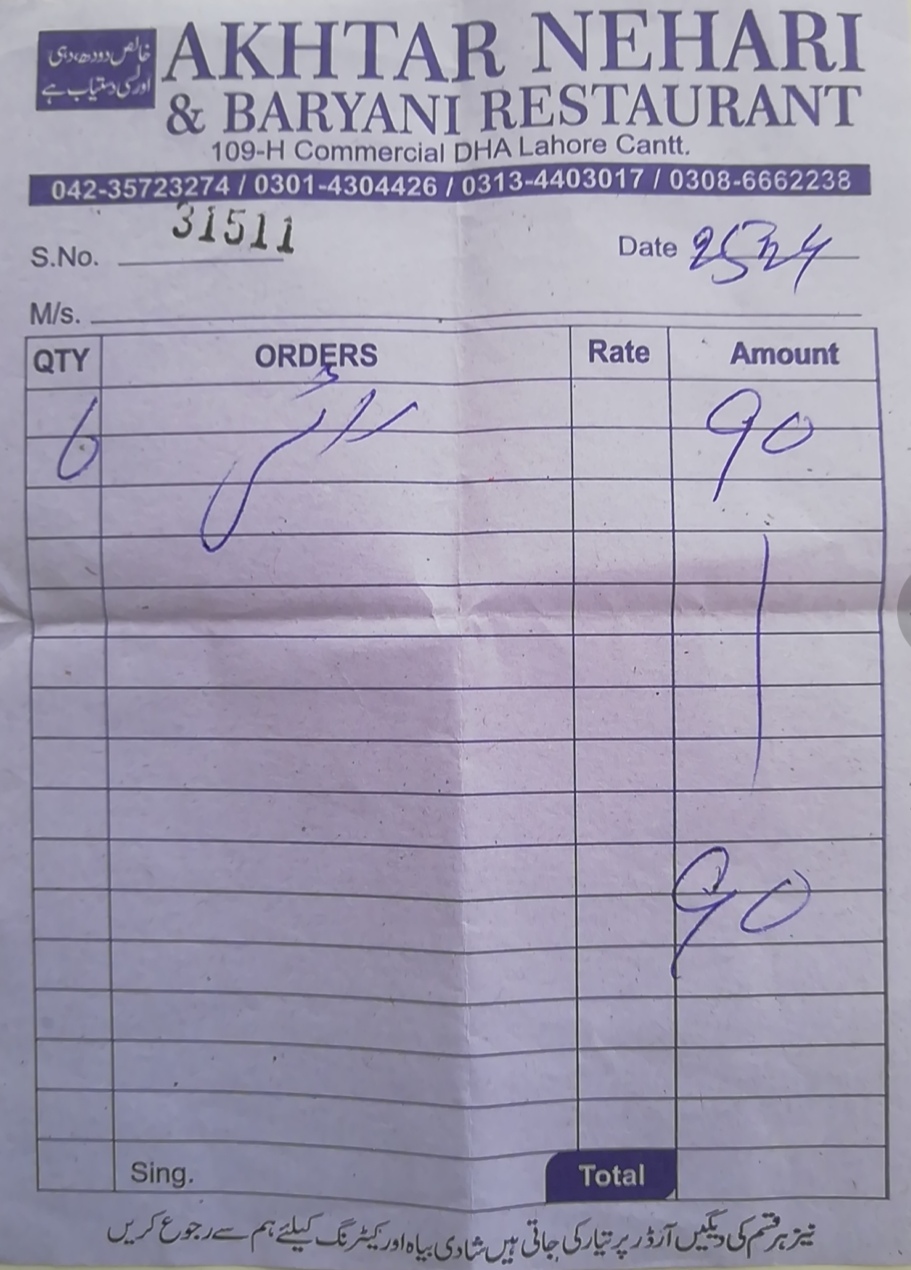 خالص دودھ، دہی
اور لسی دستیاب ہے
AKHTAR NEHARI
& BARYANI RESTAURANT
109-H Commercial DHA Lahore Cantt.
042-35723274 / 0301-4304426 / 0313-4403017 / 0308-6662238
S.No. 31511 Date
M/s.
QTY ORDERS Rate Amount
6 90
90
Sing. Total
نیز ہر قسم کی دیگیں آرڈر پر تیار کی جاتی ہیں شادی بیاہ اور کیٹرنگ کیلئے ہم سے رجوع کریں